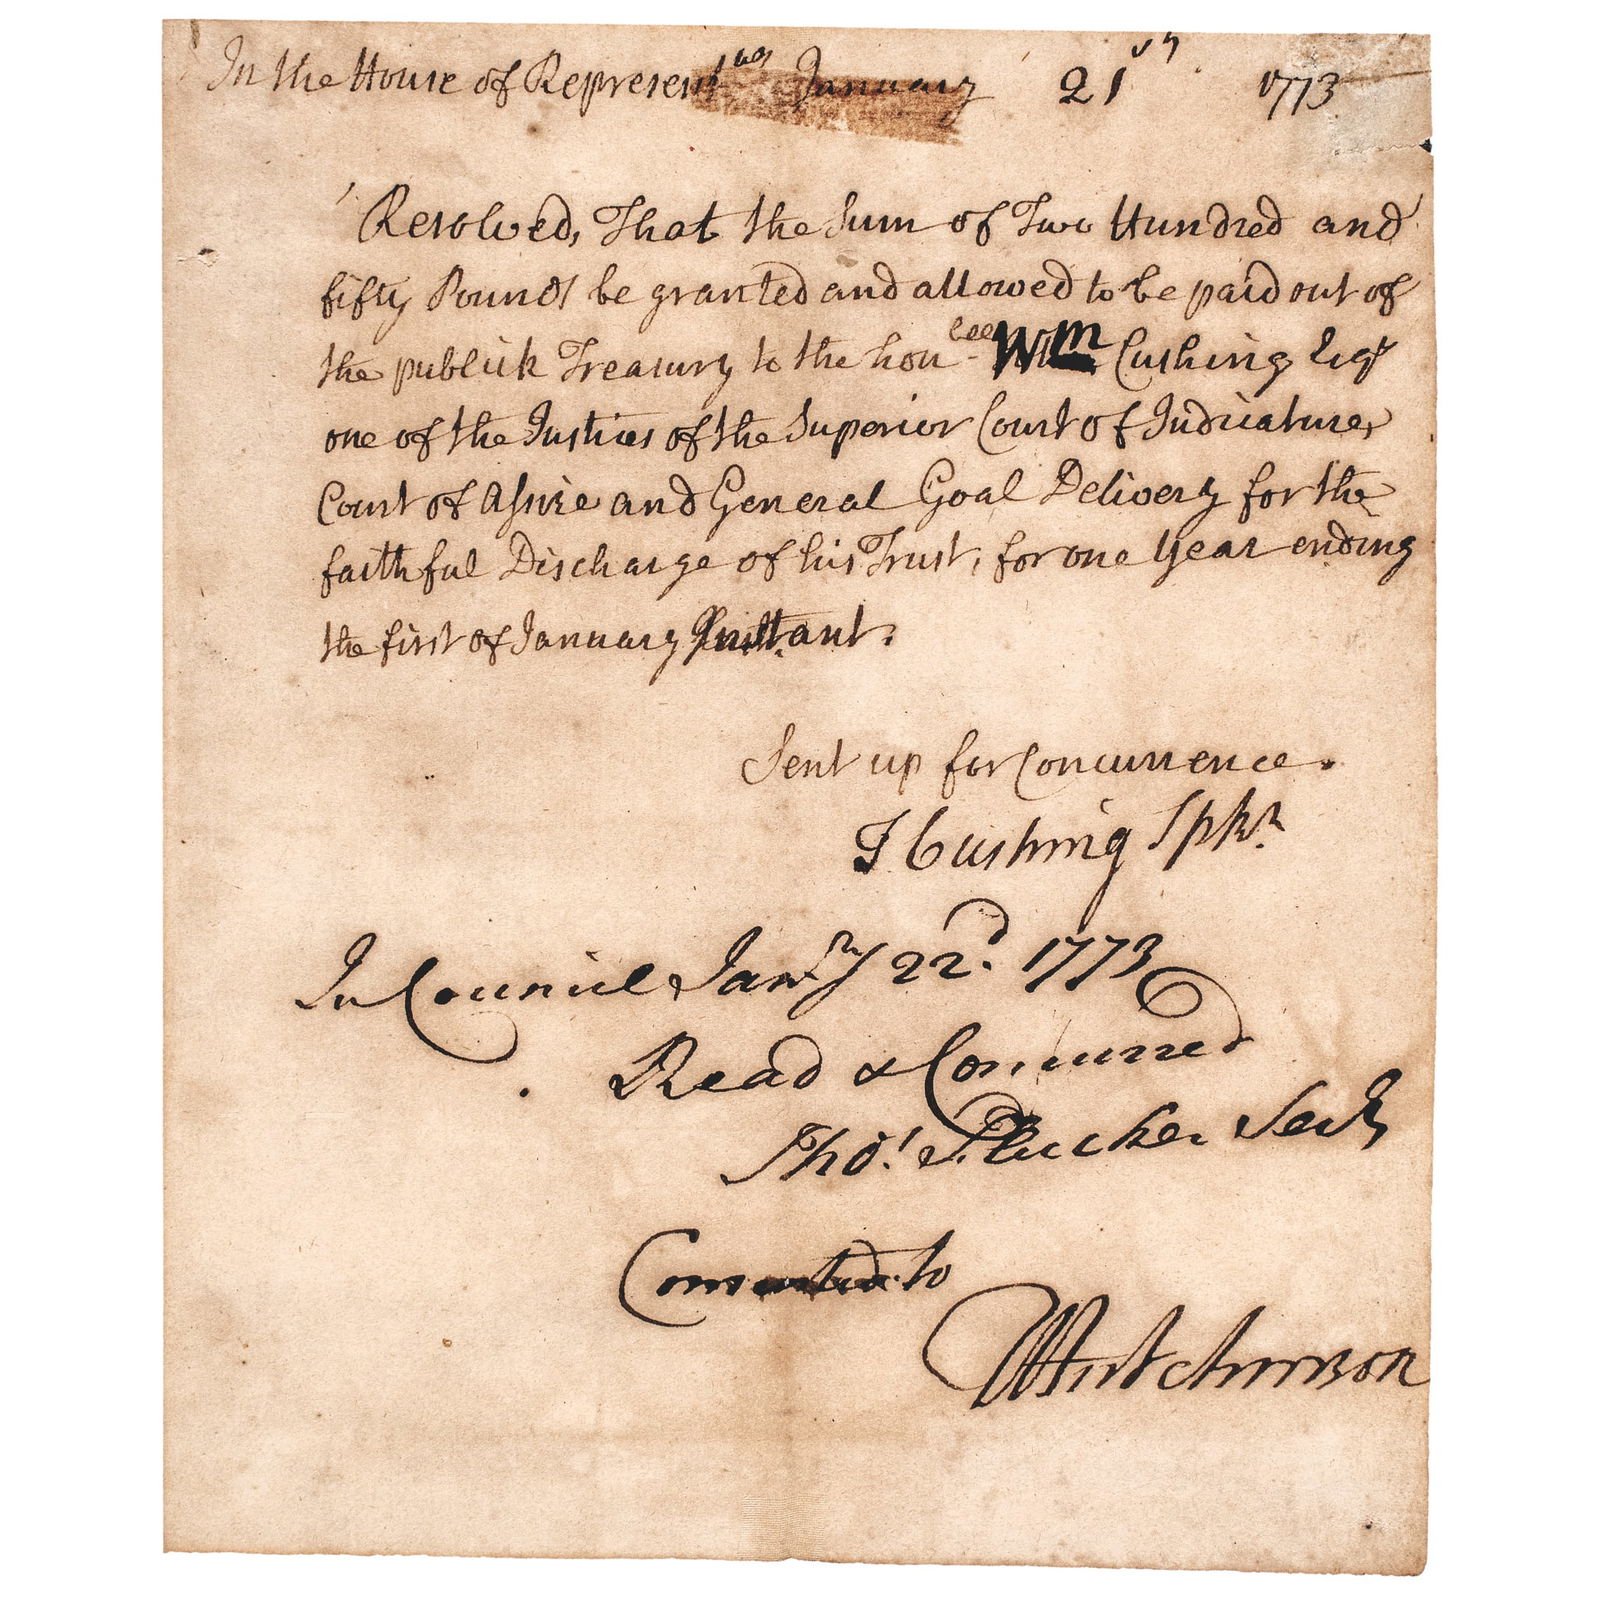 In the House of Represent^tves January 21^st 1773
Resolved, That the Sum of Two Hundred and
fifty Pounds be granted and allowed to be paid out of
the publick Treasury to the hon^ble W^m Cushing Esq^r
one of the Justices of the Superior Court of Judicature,
Court of Assize and General Goal Delivery for the
faithful Discharge of his Trust, for one Year ending
the first of January Instant.
Sent up for Concurrence.
T Cushing Spk^r.
In Council Jan^ry 22^d. 1773
Read & Concurred
Tho^s Flucker Sec^ry
Consented to
T Hutchinson